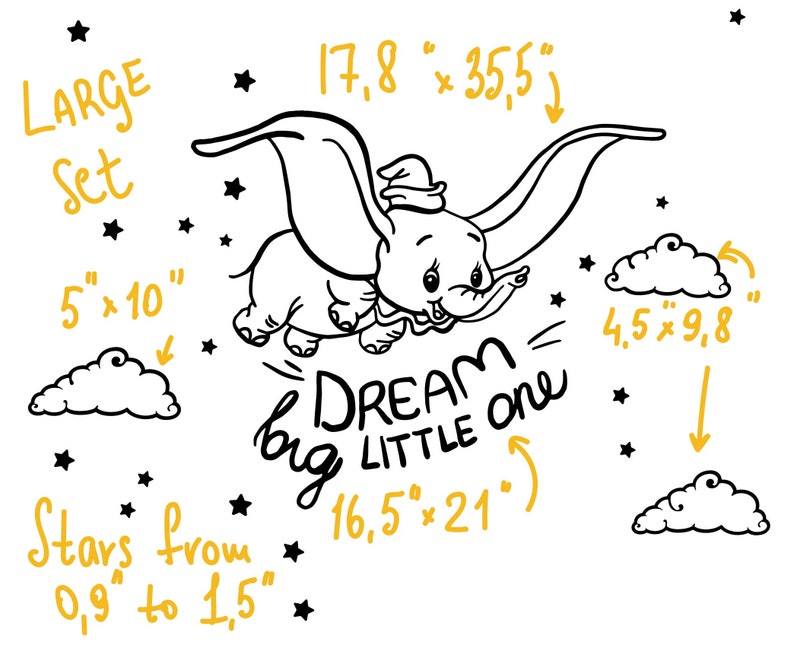 LARGE
Set
17,8" x 35,5"
5" x 10"
4,5" x 9,8"
DREAM
big LITTLE one
16,5" x 21"
Stars from
0,9" to 1,5"